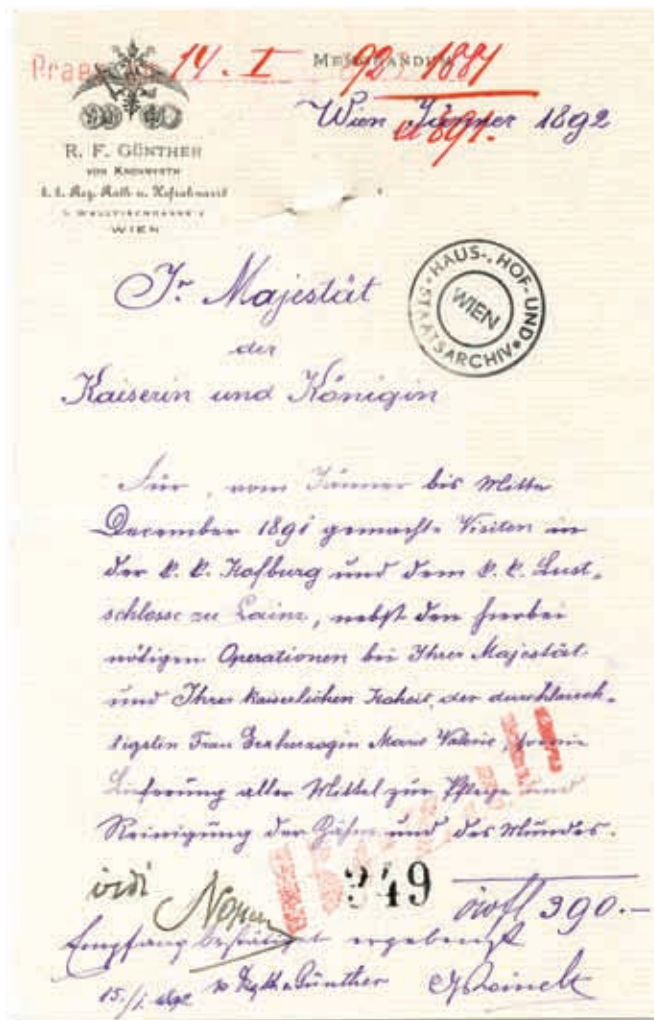 Praes. 14. I. 92. 1881
MEMORANDUM
et 891.
Wien Jänner 1892
R. F. GÜNTHER
k. k. Reg. Rath u. Hofzahnarzt
WIEN
HAUS-, HOF- UND STAATSARCHIV
WIEN
Ir Majestät
der
Kaiserin und Königin
Für, vom Jänner bis Mitte
December 1891 gemachte Visiten in
der k. k. Hofburg und dem k. k. Lust-
schlosse zu Lainz, nebst den hierbei
nötigen Operationen bei Ihrer Majestät
und Ihrer kaiserlichen Hoheit, der durchlauch-
tigsten Frau Erzherzogin Marie Valerie, sowie
Lieferung aller Mittel zur Pflege und
Reinigung der Zähne und des Mundes.
vidi
349
öwfl 390.-
Empfang bestätiget ergebenst
15./I. Günther